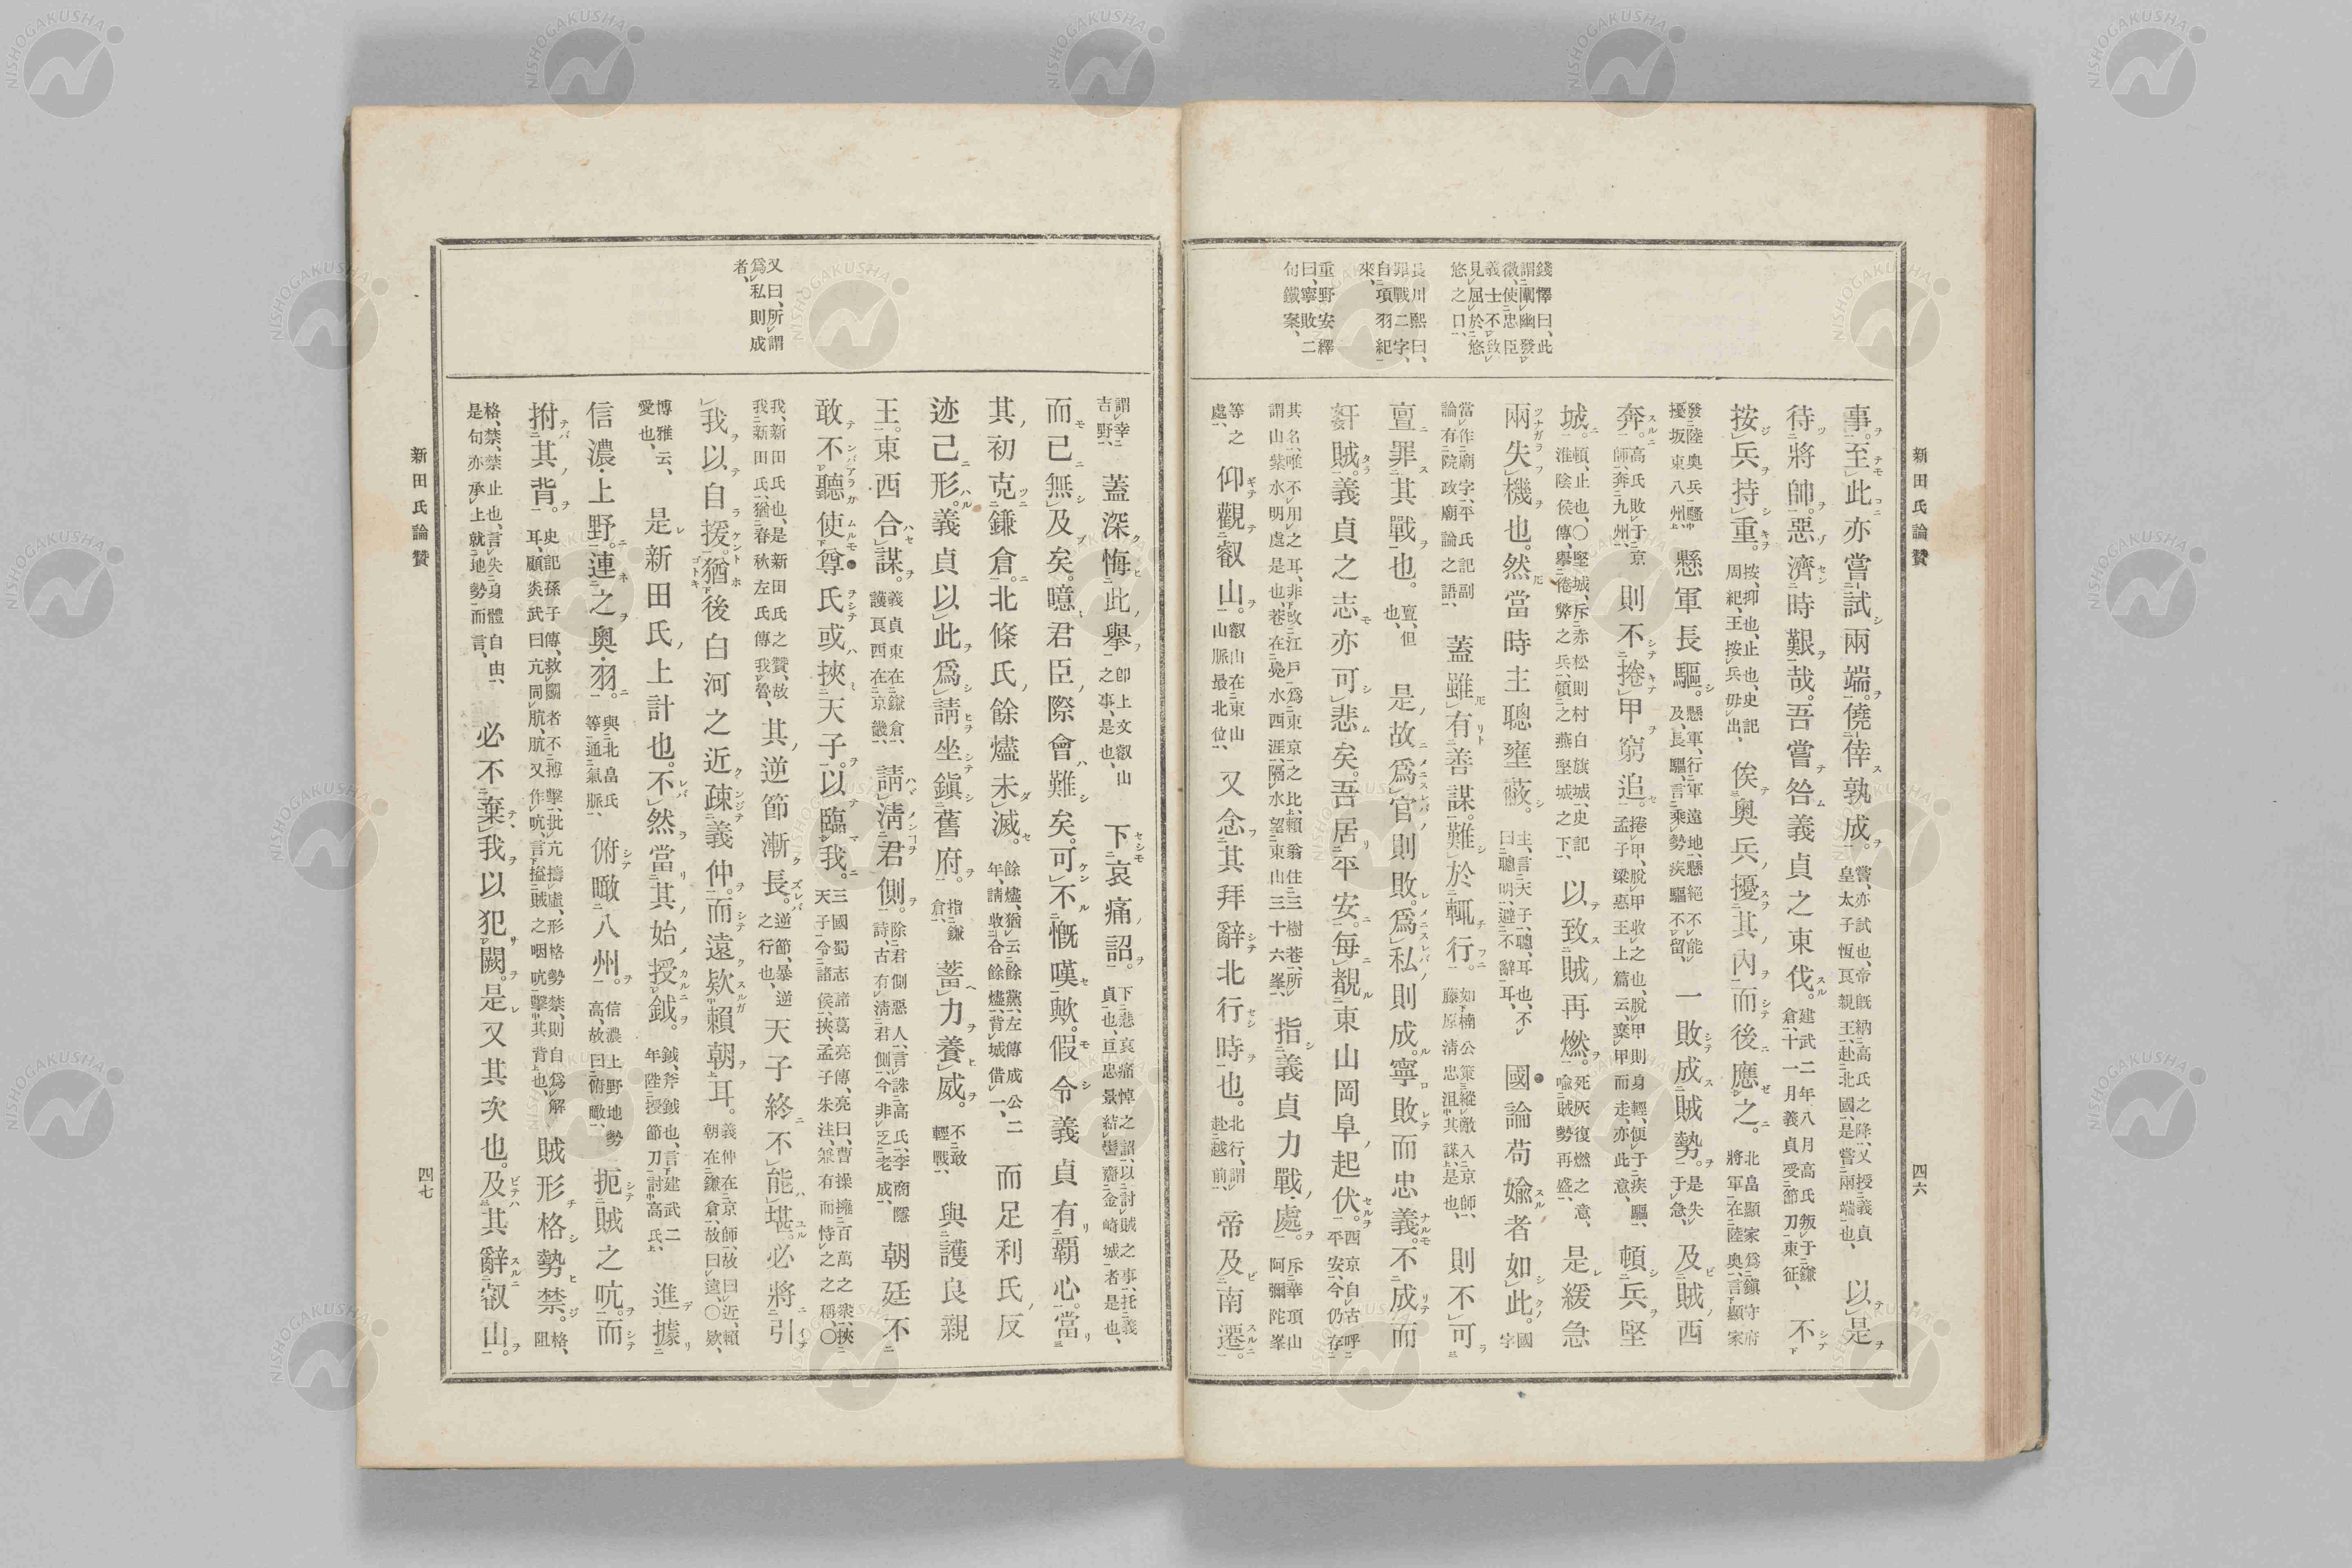 新田氏論贊
四六
錢懌曰、此
謂闡幽發
微、使忠臣
義士不致
見屈於悠
悠之口、
長川熙曰、
罪戰二字、
自項羽紀
來、
重野安繹
曰、寧敗二
句鐵案、
事。至此亦嘗試兩端。僥倖孰成。嘗、亦試也、帝既納高氏之降、又授義貞皇太子恆良親王、赴北國、是嘗兩端也、以是
待將帥。惡濟時艱哉。吾嘗咎義貞之東伐。建武二年八月高氏叛于鎌倉、十一月義貞受節刀東征、不
按兵持重。按、抑也、止也、史記周紀、王按兵毋出、俟奧兵擾其內。而後應之。北畠顯家爲鎮守府將軍在陸奧、言顯家
發陸奧兵騷擾坂東八州、懸軍長驅。懸軍、行軍遠地、懸絕不能及、長驅、言乘勢疾驅不留、一敗成賊勢。是失于急、及賊西
奔。高氏敗于京師、奔九州、則不捲甲窮追。捲甲、脫甲收之也、脫甲則身輕、便于疾驅、孟子梁惠王上篇云、棄甲而走、亦此意、頓兵堅
城。頓、止也、〇堅城、斥赤松則村白旗城、史記淮陰侯傳、擧倦弊之兵、頓之燕堅城之下、以致賊再燃。死灰復燃之意、喩賊勢再盛、是緩急
兩失機也。然當時主聰壅蔽。主、言天子、聰、耳也、不曰聰明、避不辭耳、國論苟媮者如此。國字
當作廟字、平氏記副論有院政廟論之語、蓋雖有善謀。難於輒行。如楠公策縱敵入京師、藤原淸忠沮其謀是也、則不可
亶罪其戰也。亶、但也、是故爲官則敗。爲私則成。寧敗而忠義。不成而
姧賊。義貞之志亦可悲矣。吾居平安。每觀東山岡阜起伏。西京自古呼平安、今仍存
其名、唯不用之耳、非改江戶爲東京之比、賴翁住三樹巷、所謂山紫水明處是也、巷在鴨水西涯、隔水望東山三十六峯、指義貞力戰處。斥華頂山阿彌陀峯
等之處、仰觀叡山。叡山在東山山脈最北位、又念其拜辭北行時也。北行、謂赴越前、帝及南遷。
又曰、所謂
爲私則成
者、
謂幸吉野、蓋深悔此擧。卽上文叡山之事、是也、下哀痛詔。下悲哀痛悼之詔、以討賊之事、托義貞也、亘忠景結髻齎金崎城者是也、
而已無及矣。噫君臣際會難矣。可不慨嘆歟。假令義貞有覇心。當
其初克鎌倉。北條氏餘燼未滅。餘燼、猶云餘黨、左傳成公二年、請收合餘燼、背城借一、而足利氏反
迹已形。義貞以此爲請坐鎭舊府。指鎌倉、蓄力養威。不敢輕戰、與護良親
王。東西合謀。義貞東在鎌倉、護良西在京畿、請淸君側。除君側惡人、言誅高氏、李商隱詩、古有淸君側、今非乏老成、朝廷不
敢不聽使尊氏或挾天子。以臨我。三國蜀志諸葛亮傳、亮曰、曹操擁百萬之衆、挾天子令諸侯、挾、孟子朱注、兼有而恃之之稱、〇
我、新田氏也、是新田氏之贊、故我新田氏、猶春秋左氏傳我魯、其逆節漸長。逆節、暴逆之行也、天子終不能堪。必將引
我以自援。猶後白河之近疎義仲。而遠欵賴朝耳。義仲在京師、故曰近、賴朝在鎌倉、故曰遠、〇欵、
博雅云、愛也、是新田氏上計也。不然當其始授鉞。鉞、斧鉞也、言建武二年陛授節刀討高氏、進據
信濃·上野。連之奧·羽。與北畠氏等通氣脈、俯瞰八州。信濃上野地勢高、故曰俯瞰、扼賊之吭。而
拊其背。史記孫子傳、救鬪者不搏擊、批亢擣虛、形格勢禁、則自爲解耳、顧炎武曰亢同肮、肮又作吭、言搤賊之咽吭擊其背也、賊形格勢禁。格、阻
格、禁、禁止也、言失身體自由、是句亦承上就地勢而言、必不棄我以犯闕。是又其次也。及其辭叡山。
新田氏論贊
四七